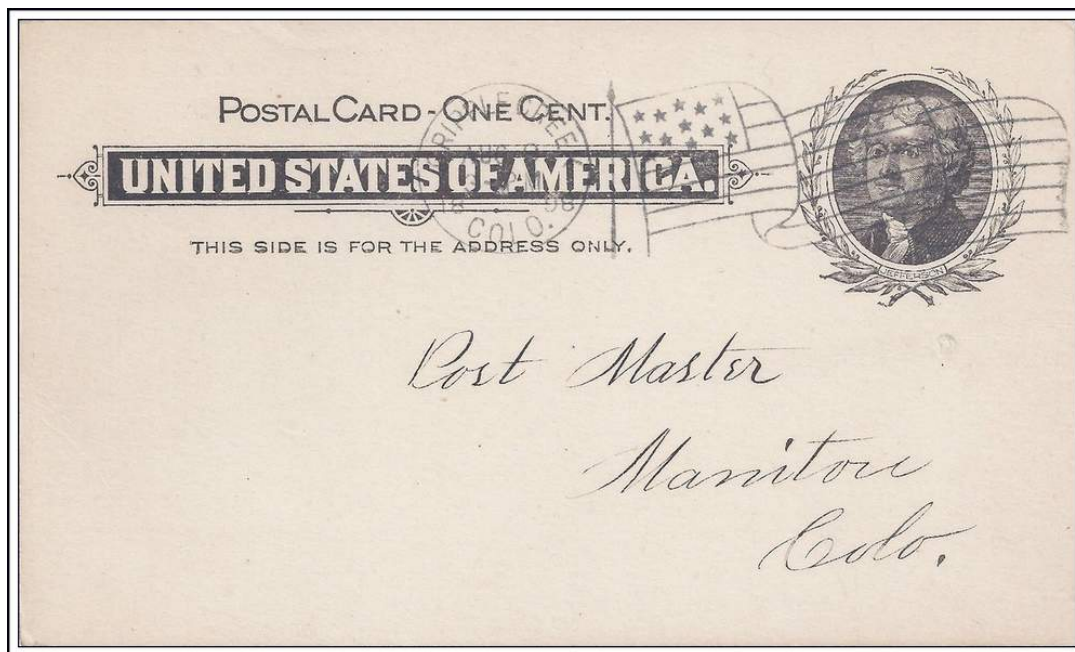 POSTAL CARD - ONE CENT.
UNITED STATES OF AMERICA.
THIS SIDE IS FOR THE ADDRESS ONLY.
CRIPPLE CREEK
AUG
98
COLO.
JEFFERSON
Post Master
Manitou
Colo.